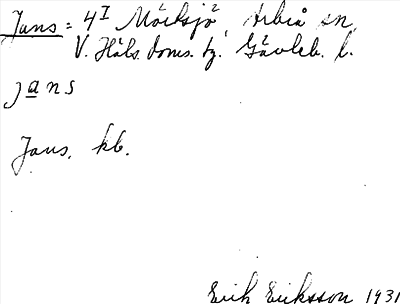 Jans = 4I Mörksjö, Arbrå sn,
V. Häls. doms. hg. Gävleb. l.
jans
Jans. kb.
Erik Eriksson 1931